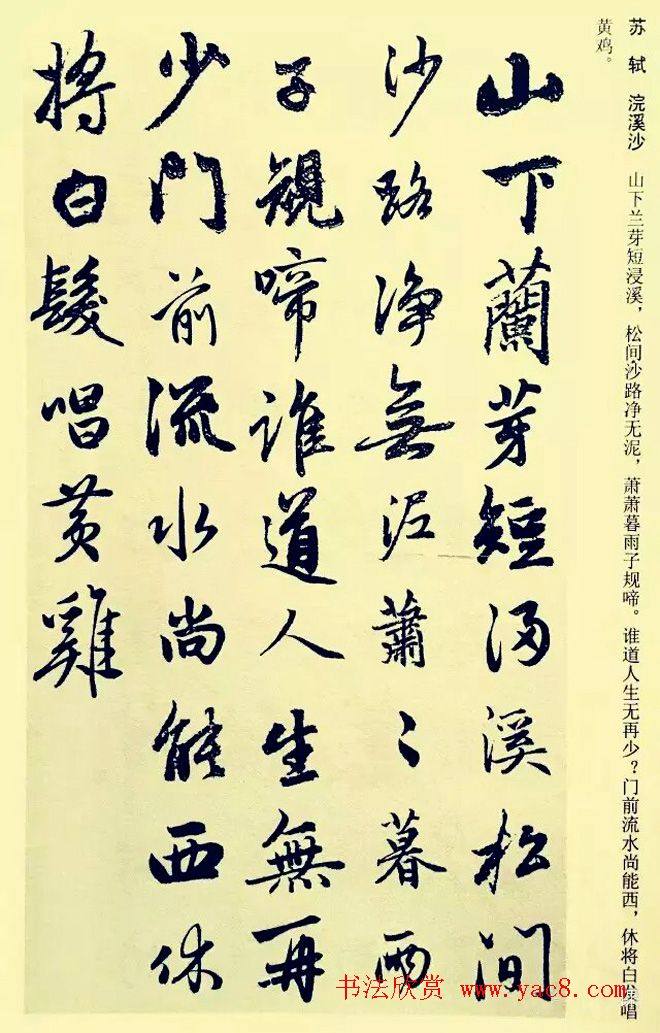 苏 轼 浣溪沙 山下兰芽短浸溪，松间沙路净无泥，萧萧暮雨子规啼。谁道人生无再少？门前流水尚能西，休将白发唱
黄鸡。
山下蘭芽短浸溪松間
沙路净無泥蕭〻暮雨
子規啼谁道人生無再
少門前流水尚能西休
将白髮唱黄雞
书法欣赏 www.yac8.com